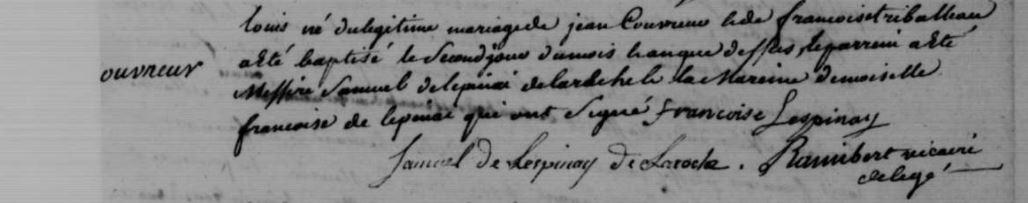 louis né du legitime mariage de jean Couvreur & de francoise triballeau
a été baptisé le Second jour du mois & an que dessus, le parrein a été
ouvreur
Messire Samuel de lepinai de laroche & la Mareine demoiselle
francoise de lepinai qui ont Signé francoise Lespinay
Samuel de Lespinay de Laroche . Rambert vicaire
delegé